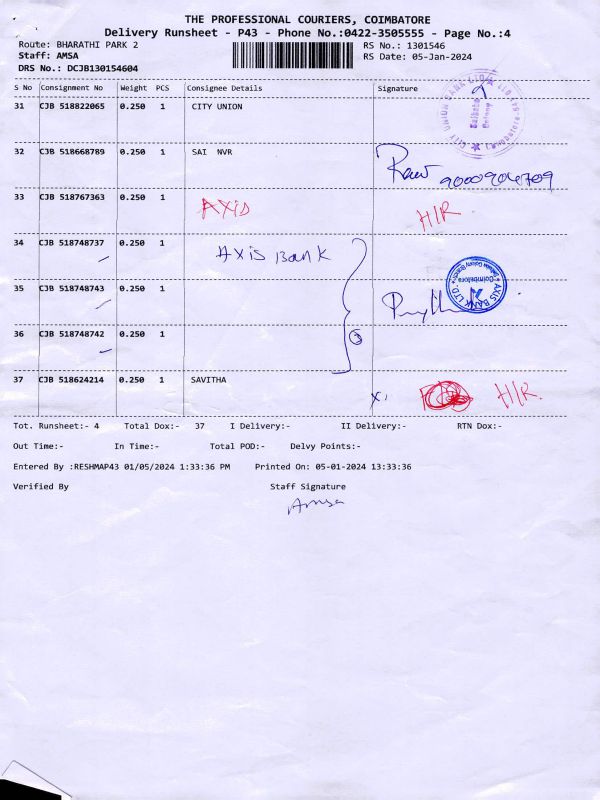 THE PROFESSIONAL COURIERS, COIMBATORE
Delivery Runsheet - P43 - Phone No.:0422-3505555 - Page No.:4
Route: BHARATHI PARK 2 RS No.: 1301546
Staff: AMSA RS Date: 05-Jan-2024
DRS No.: DCJB130154604
S No Consignment No Weight PCS Consignee Details Signature
31 CJB 518822065 0.250 1 CITY UNION
CITY UNION BANK LTD
32 CJB 518668789 0.250 1 SAI NVR
33 CJB 518767363 0.250 1 AXIS H/R
34 CJB 518748737 0.250 1 Axis Bank
35 CJB 518748743 0.250 1
AXIS BANK LTD. Coimbatore
36 CJB 518748742 0.250 1
37 CJB 518624214 0.250 1 SAVITHA H/R
Tot. Runsheet:- 4 Total Dox:- 37 I Delivery:- II Delivery:- RTN Dox:-
Out Time:- In Time:- Total POD:- Delvy Points:-
Entered By :RESHMAP43 01/05/2024 1:33:36 PM Printed On: 05-01-2024 13:33:36
Verified By Staff Signature
Amsa